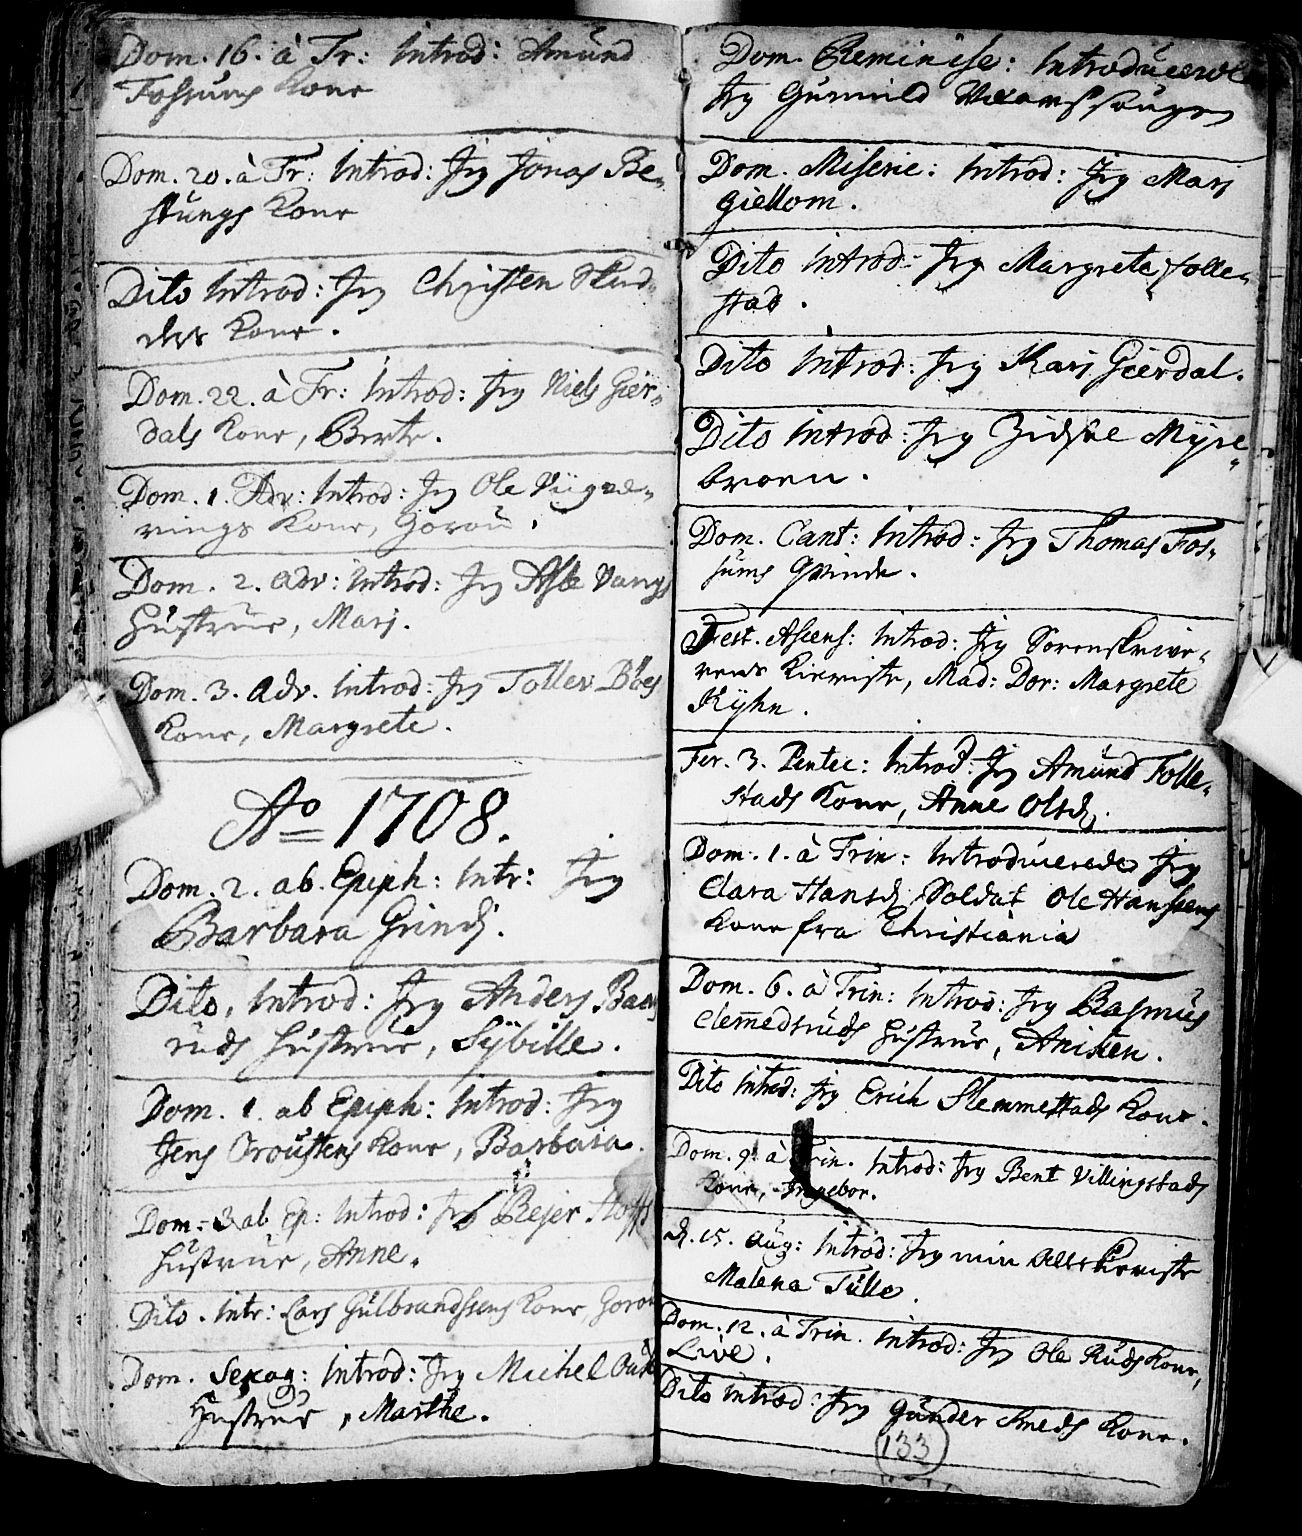 Dom. 16. à Tr: Introd: Amund
Fossums Kone
Dom. 20. à Tr: Introd: Jeg Jonas Be-
stungs Kone
Dito Introd: Jeg Christen Skud-
des Kone.
Dom. 22. à Tr: Introd: Jeg Niels Gier-
dals Kone, Berte.
Dom. 1. Adv: Introd: Jeg Ole
rings Kone, Gorou.
Dom. 2. Adv: Introd: Jeg Asle Vangs
Hustrue, Marj.
Dom. 3. Adv. Introd: Jeg Tollev Bles
Kone, Margrete.
Ao 1708.
Dom. 2. ab Epiph: Intr: Jeg
Barbara Grindj.
Dito, Introd: Jeg Anders Baa
ruds Hustrue, Sÿbille.
Dom. 1. ab Epiph: Introd: Jeg
Jens Kone, Barbara.
Dom. 3 ab Ep: Introd: Jeg Rejer Hoffs
Hustrue, Anne.
Dito. Intr: Lars Gulbrandssens Kone, Gorou
Dom. Sexag: Introd: Jeg Michel
Hustrue, Marthe.
Dom. Reminisc: Introducerede
Jeg Gunnild
Dom. Miseric: Introd: Jeg Marj
Giellom.
Dito Introd: Jeg Margrete Folle-
stad.
Dito Introd: Jeg Karj Gierdal.
Dito Introd: Jeg Zidsele Mÿre-
broen.
Dom. Cant: Introd: Jeg Thomas Fos-
sums Qvinde.
Fest. Ascens: Introd: Jeg Sorenskrive-
rens Kieriste, Mad: Dor: Margrete
Kÿhn.
Fer. 3. Pentec: Introd: Jeg Amund Folle-
stads Kone, Anne Olsd.
Dom. 1. à Trin: Introducerede Jeg
Clara Hansd, Soldat Ole Hanssens
Kone fra Christiania
Dom. 6. à Trin: Introd: Jeg Rasmus
Clemedsruds Hustrue, Aniken.
Dito Introd: Jeg Erich Slemmestads Kone.
Dom. 9. à Trin. Introd: Jeg Bent Villingstads
Kone, Ingebor.
d. 15. Aug: Introd: Jeg min Allerkieriste
Malena Tulle.
Dom. 12. à Trin. Introd: Jeg Ole Ruds Kone,
Live.
Dito Introd: Jeg Gunder Smeds Kone.
133